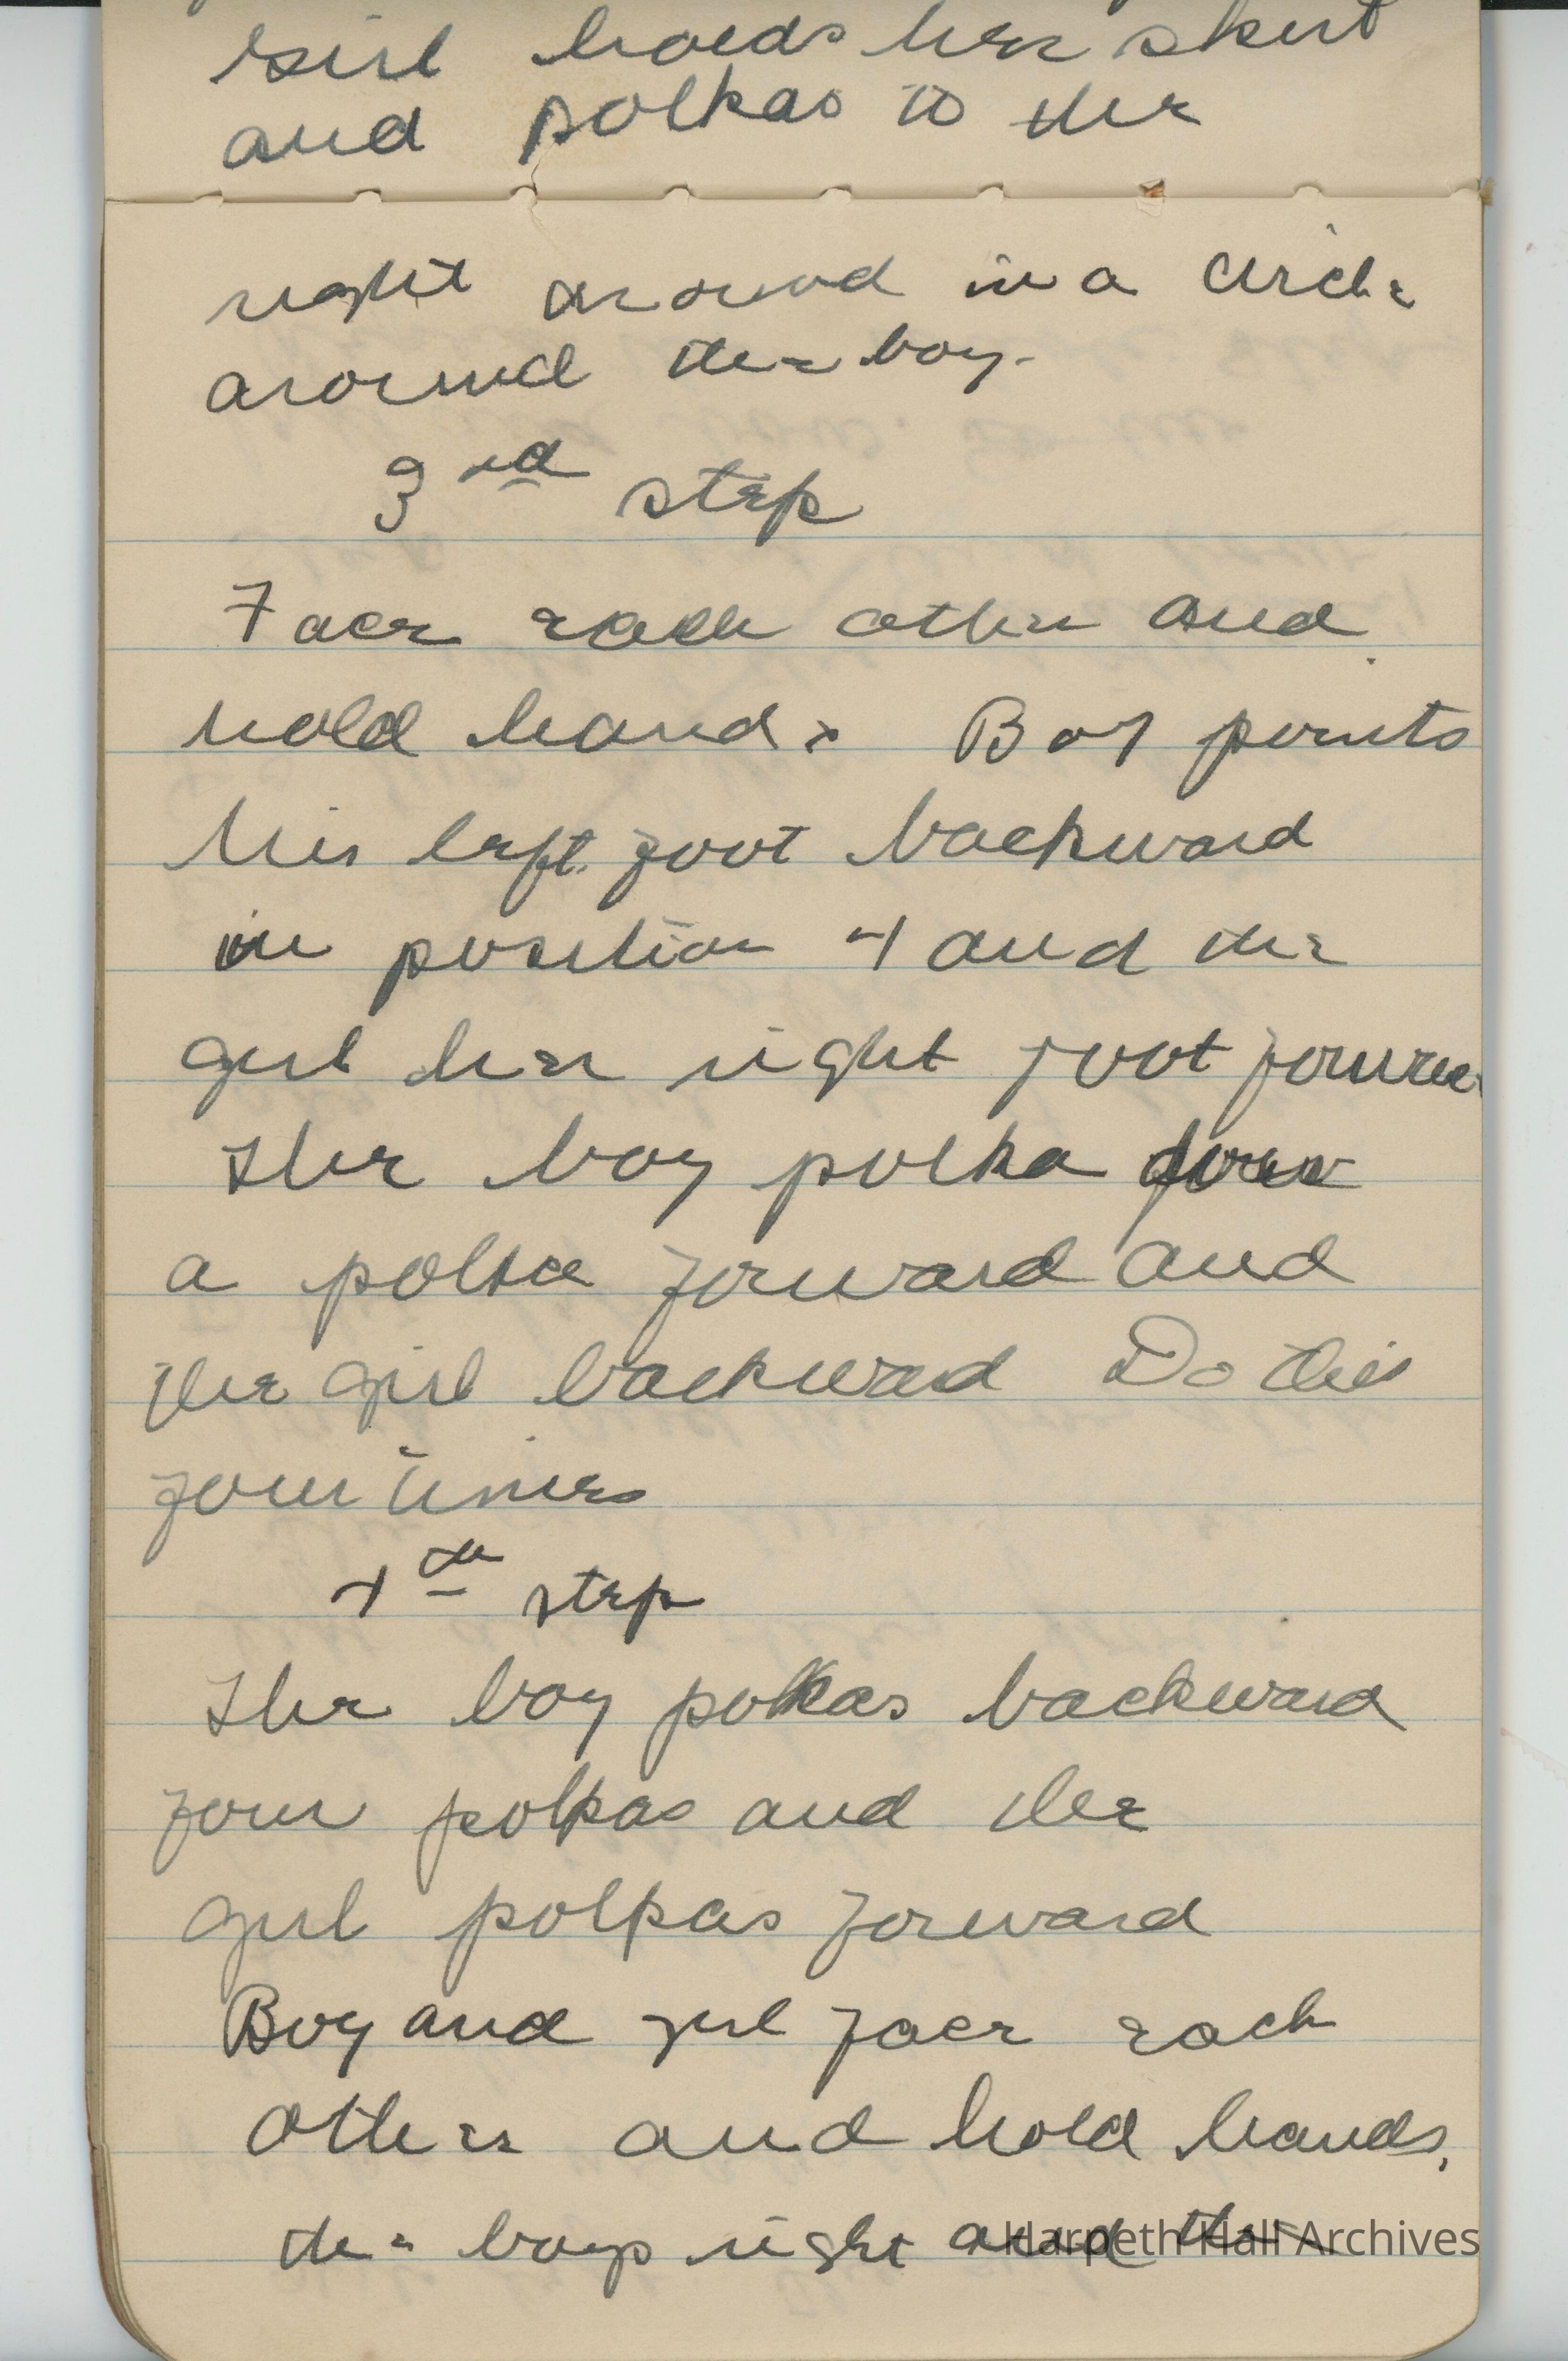 Girl holds her skirt
and polkas to the
right around in a circle
around the boy.
3rd step
Face each other and
hold hands Boy points
his left foot backward
in position 4 and the
girl her right foot
The boy polka
a polka forward and
the girl backward Do this
four times
4th step
The boy polkas backward
four polkas and the
girl polkas forward
Boy and girl face each
other and hold hands,
the boys right and the
Harpeth Hall Archives